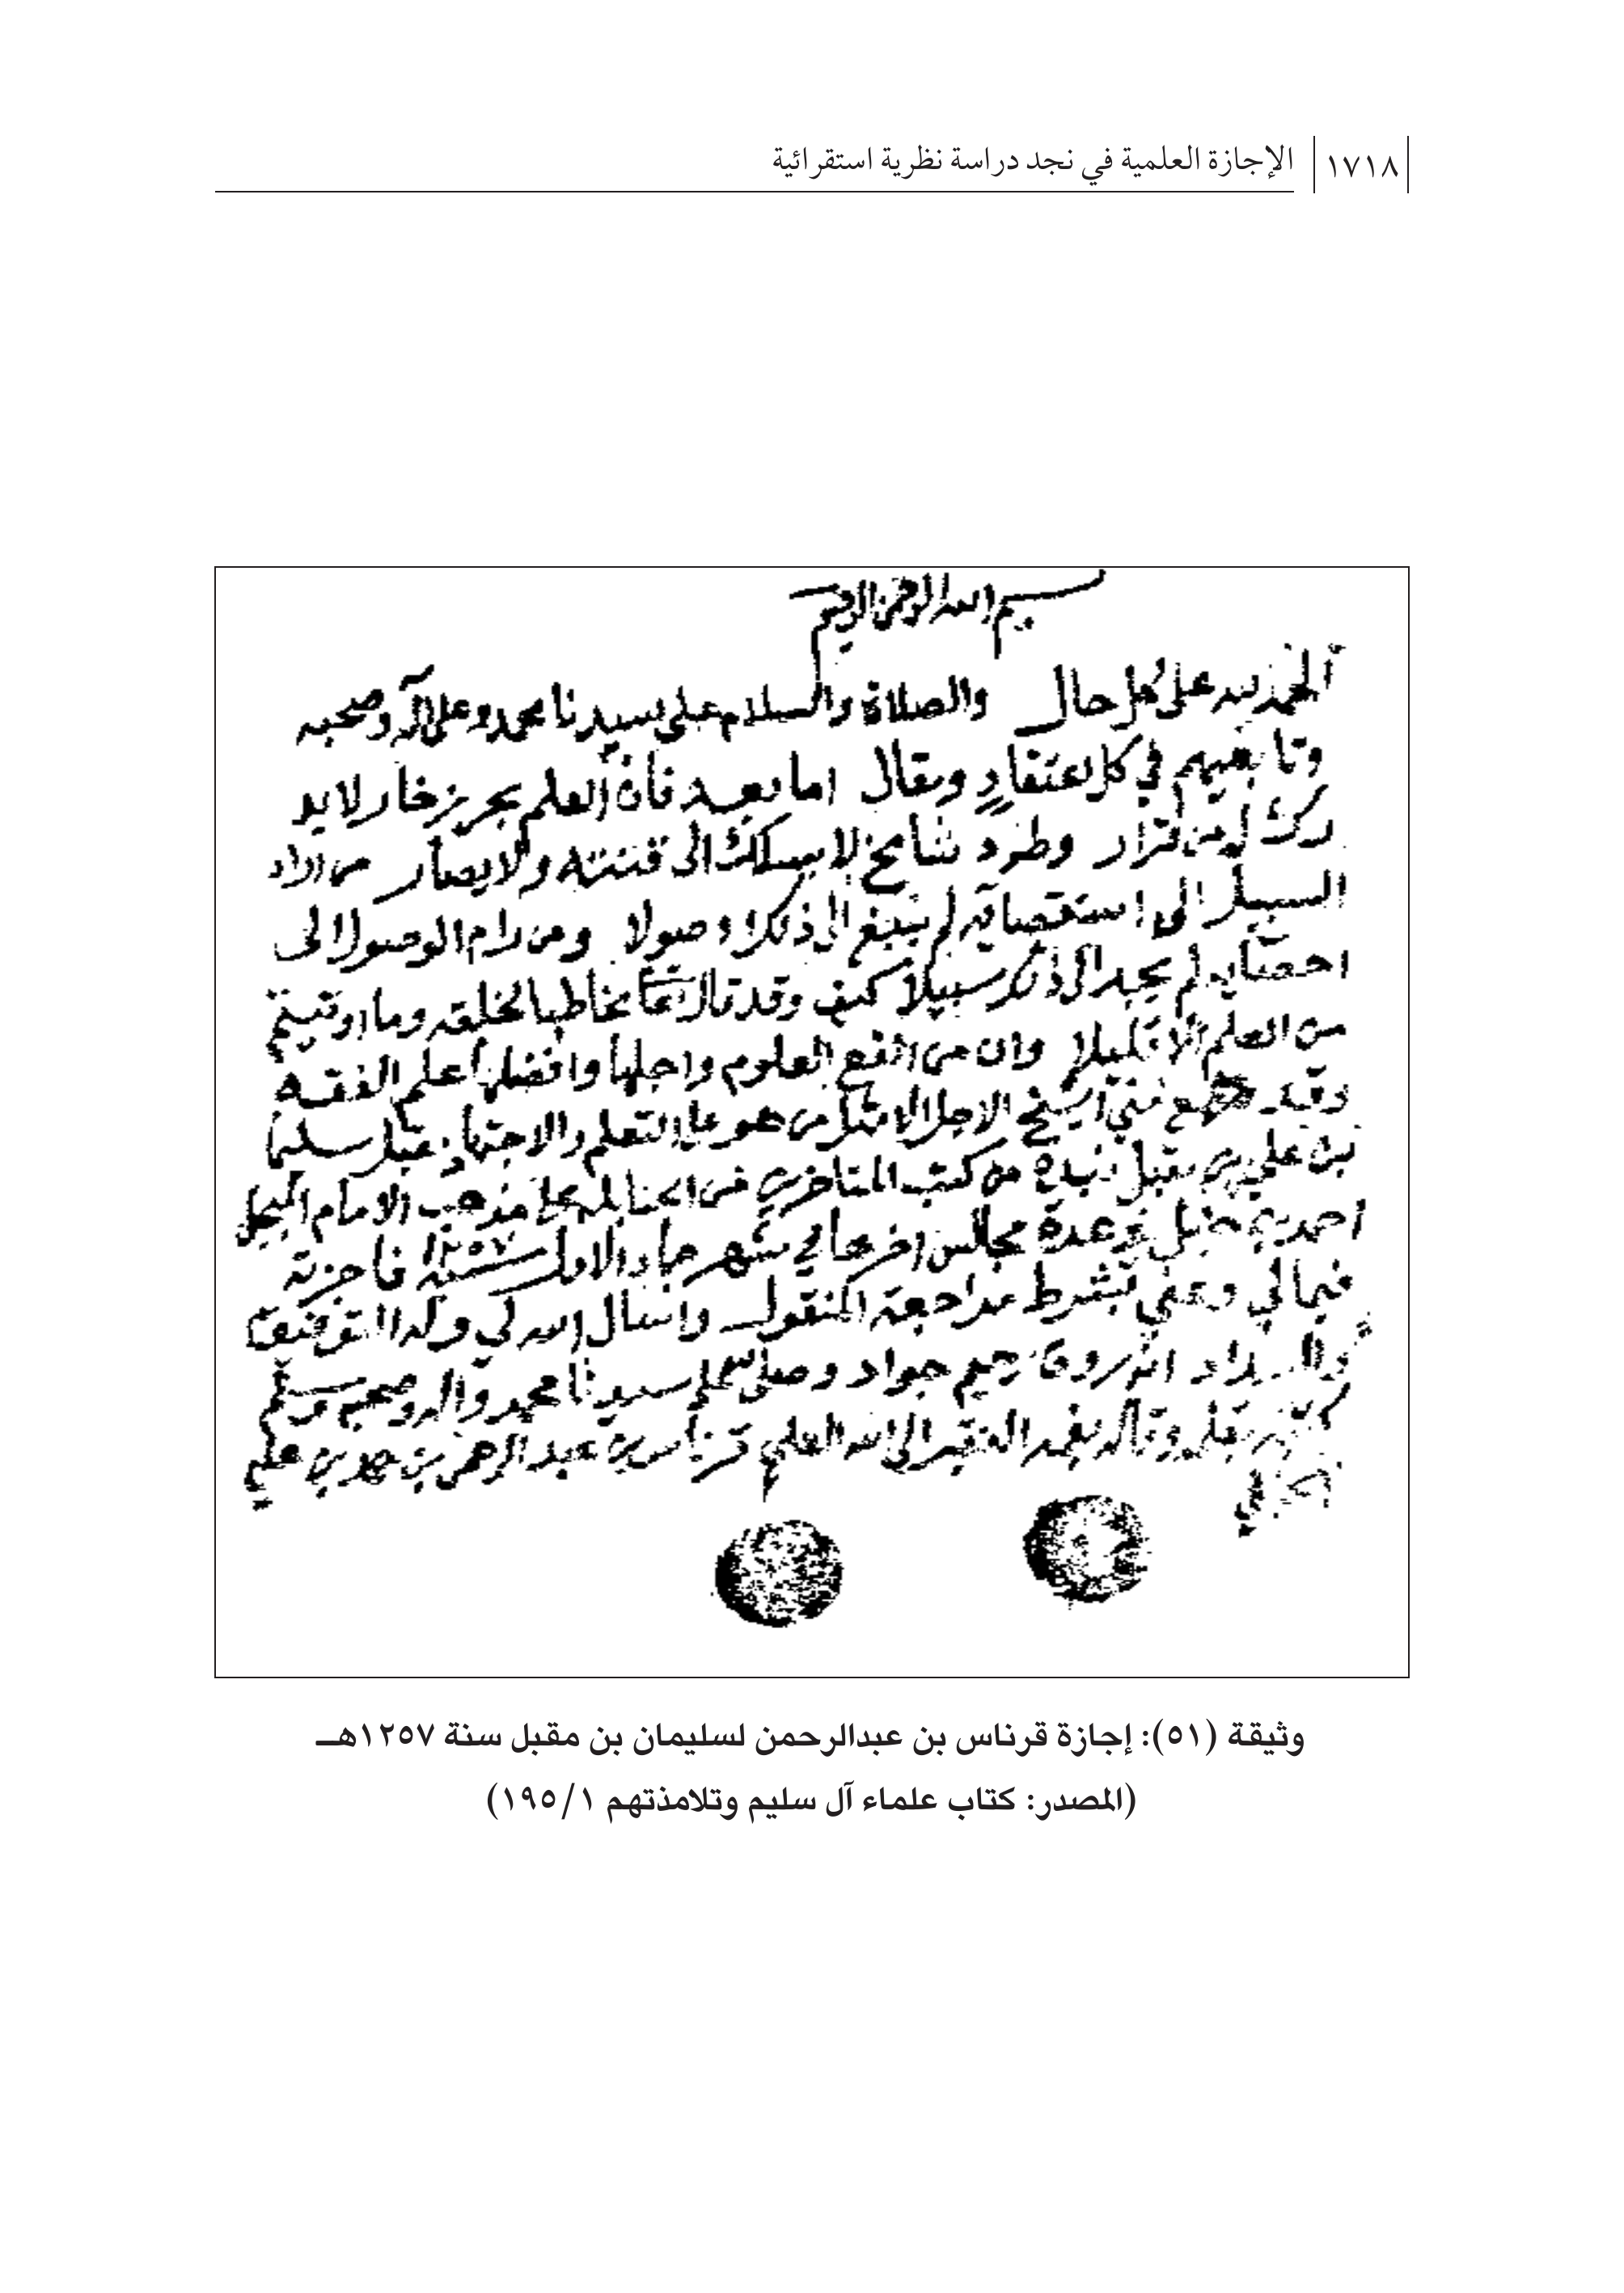 ١٧١٨ الإجازة العلمية في نجد دراسة نظرية استقرائية
بسم الله الرحمن الرحيم
الحمد لله على كل حال والصلاة والسلام على سيدنا محمد وعلى آله وصحبه
وتابعيهم في كل اعتقاد ومقال اما بعد فان العلم بحر زخار لا يد
رك له من قرار وطود شامخ لا يسلك الى قنته ولا يصار من اراد
السبيل الى استقصايه لم يبلغ الى ذلك وصولا ومن رام الوصول الى
احصايه لم يجد الى ذلك سبيلا كيف وقد قال تعا مخاطبا لخلقه وما اوتيتم
من العلم الا قليلا وان من انفع العلوم واجلها وافضلها علم الفقه
وقد سمع مني الشيخ الاجل الامثل من هو على التعلم والاجتهاد مقبل سليما
بن علي بن مقبل نبذة من كتب المتاخرين من الحنابلة على مذهب الامام المبجل
احمد بن حنبل في عدة مجالس اخرها في شهر جماد الاول سنة ١٢٥٧ فاجزته
فيما لي وعني بشرط مراجعة المنقول واسال الله لي وله التوفيق
والسداد انه روف رحيم جواد وصلى الله على سيدنا محمد وآله وصحبه وسلم
وقاله بفمه الفقير الى الله العلي قرناس بن عبد الرحمن بن محمد بن علي
الحنبلي
وثيقة (٥١): إجازة قرناس بن عبدالرحمن لسليمان بن مقبل سنة ١٢٥٧هـ
(المصدر: كتاب علماء آل سليم وتلامذتهم ١/ ١٩٥)